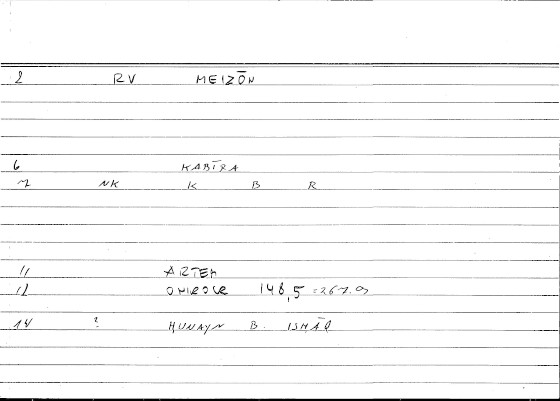 2 RV MEIZŌN
6 KABĪRA
7 NK K B R
11 ARTEM
12 ONIROCR 148,5 = 267.9
14 ? HUNAYN B. ISHĀQ